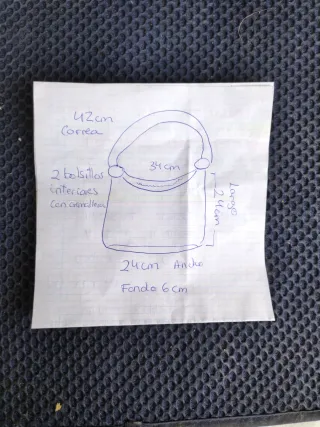 42cm
Correa
34cm
2 bolsillos
interiores
con cremallera
Largo
24cm
24cm Ancho
Fondo 6cm